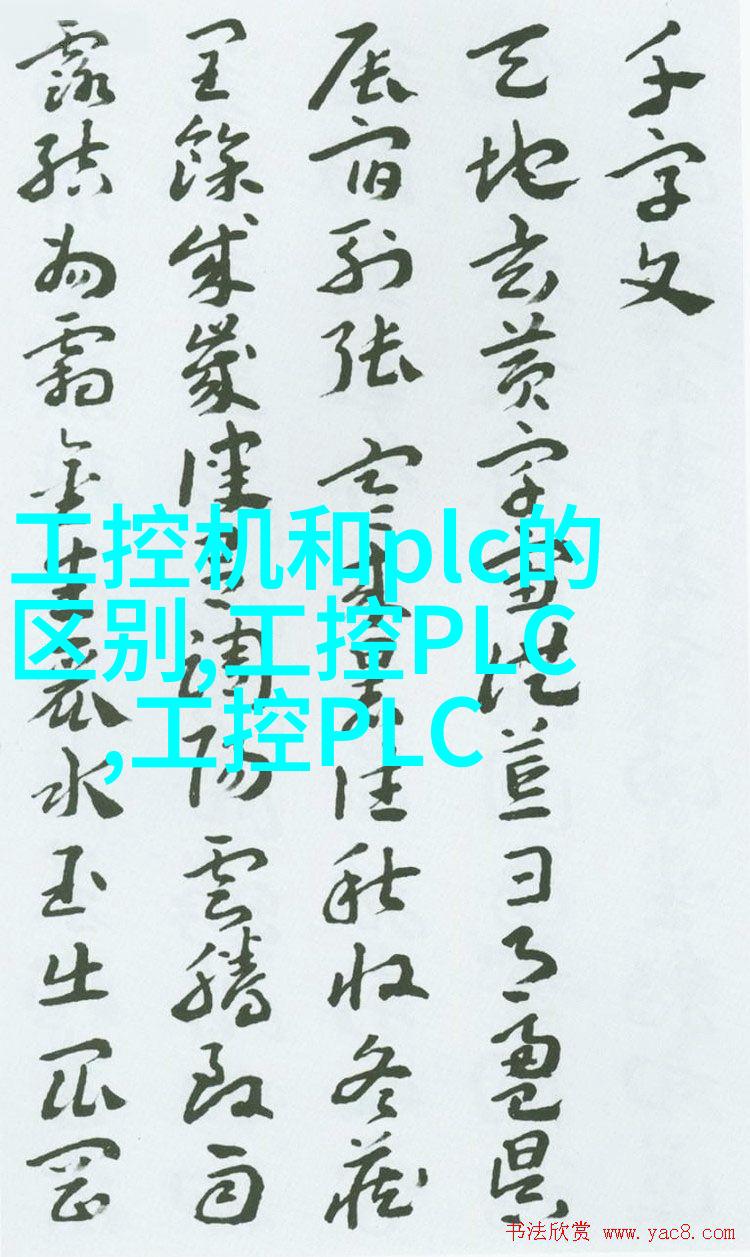 千字文
天地玄黄宇宙洪荒日月盈昃
辰宿列張寒來暑往秋收冬藏
閏餘成歲律吕調陽雲騰致雨
露結為霜金生麗水玉出崑岡
工控机和plc的
区别,工控PLC
,工控PLC
书法欣赏 www.yac8.com